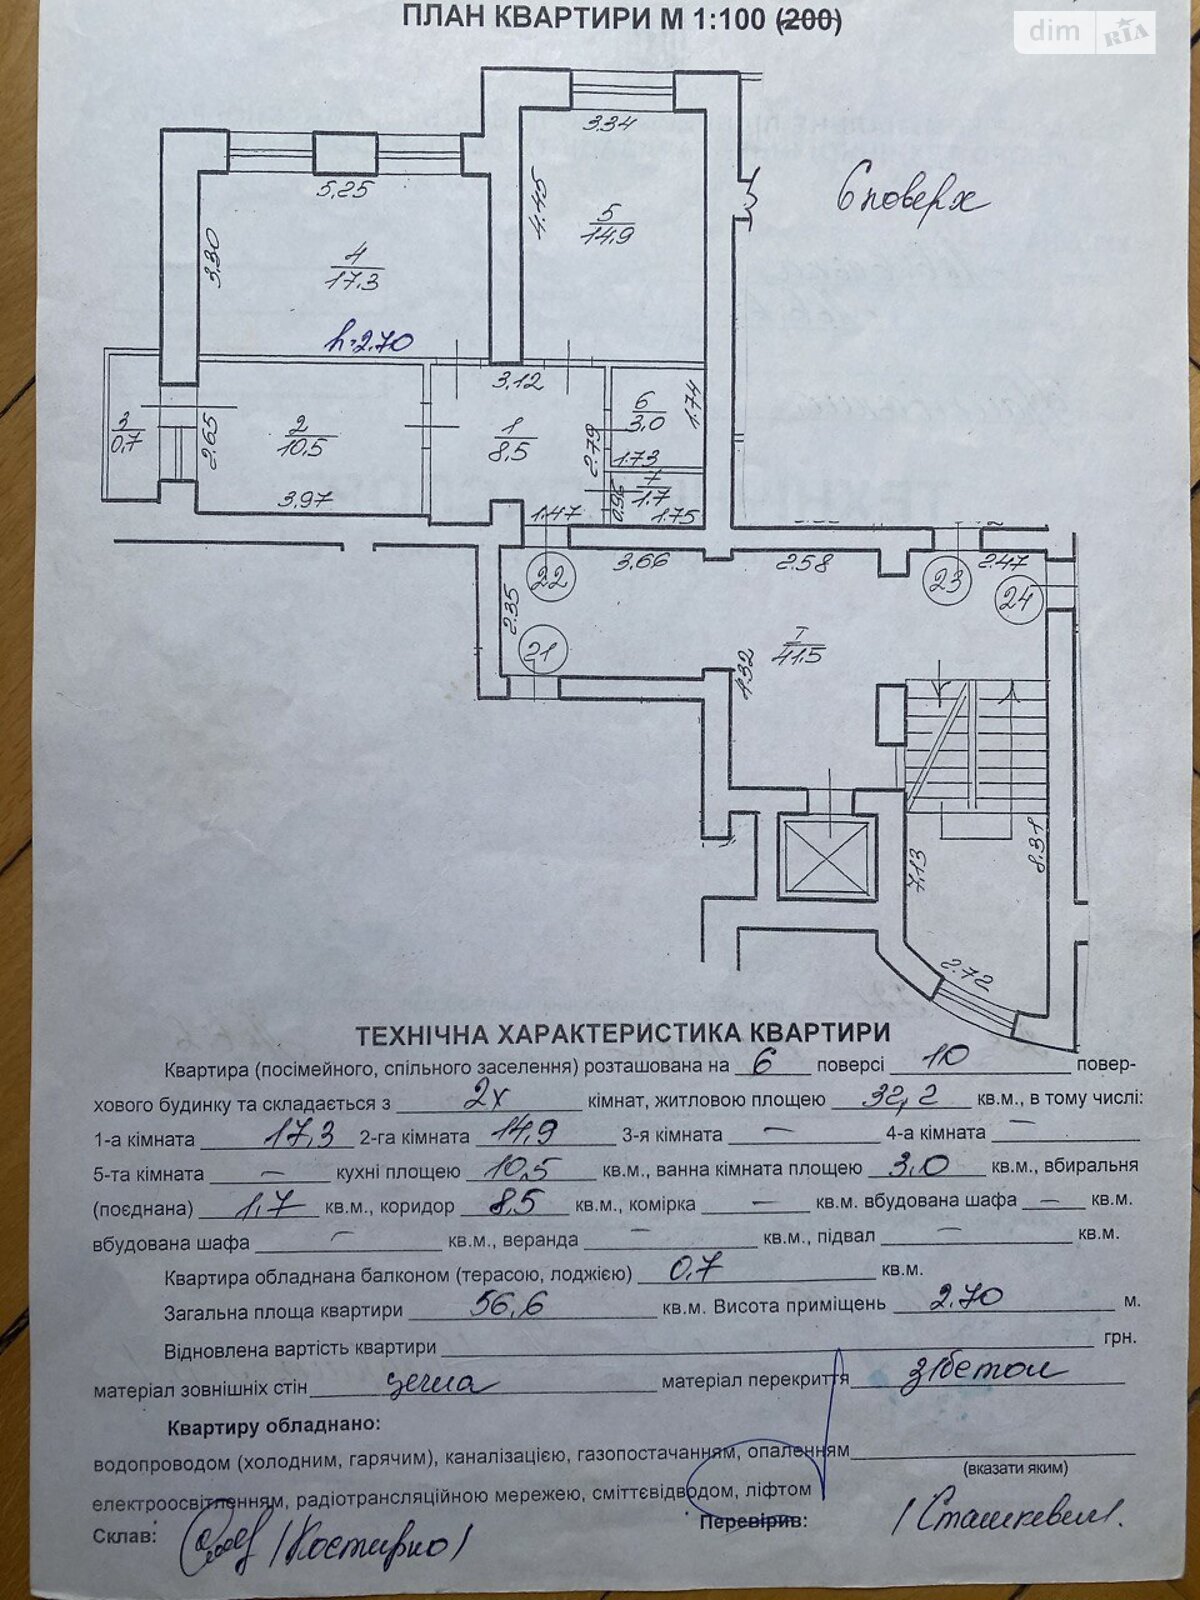 ПЛАН КВАРТИРИ М 1:100 (200)
dim RIA
3.34
6 поверх
5,25
4.45
5
14.9
3.30
4
17.3
h=2.70
3.12
6
3.0
1.74
3
0,7
2.65
2
10.5
1
8.5
2.79
1.73
7
1.7
3.97
1.47
0.96
1.75
22
3.66
2.58
23
2.47
24
2.35
21
I
41.5
4.32
7.13
8.31
2.72
ТЕХНІЧНА ХАРАКТЕРИСТИКА КВАРТИРИ
Квартира (посімейного, спільного заселення) розташована на 6 поверсі 10 повер-
хового будинку та складається з 2х кімнат, житловою площею 32,2 кв.м., в тому числі:
1-а кімната 17,3 2-га кімната 14,9 3-я кімната — 4-а кімната —
5-та кімната — кухні площею 10,5 кв.м., ванна кімната площею 3.0 кв.м., вбиральня
(поєднана) 1,7 кв.м., коридор 8,5 кв.м., комірка — кв.м. вбудована шафа — кв.м.
вбудована шафа — кв.м., веранда — кв.м., підвал — кв.м.
Квартира обладнана балконом (терасою, лоджією) 0.7 кв.м.
Загальна площа квартири 56,6 кв.м. Висота приміщень 2.70 м.
Відновлена вартість квартири грн.
матеріал зовнішніх стін цегла матеріал перекриття з/бетон
Квартиру обладнано:
водопроводом (холодним, гарячим), каналізацією, газопостачанням, опаленням
(вказати яким)
електроосвітленням, радіотрансляційною мережею, сміттєвідводом, ліфтом
Склав: Перевірив: